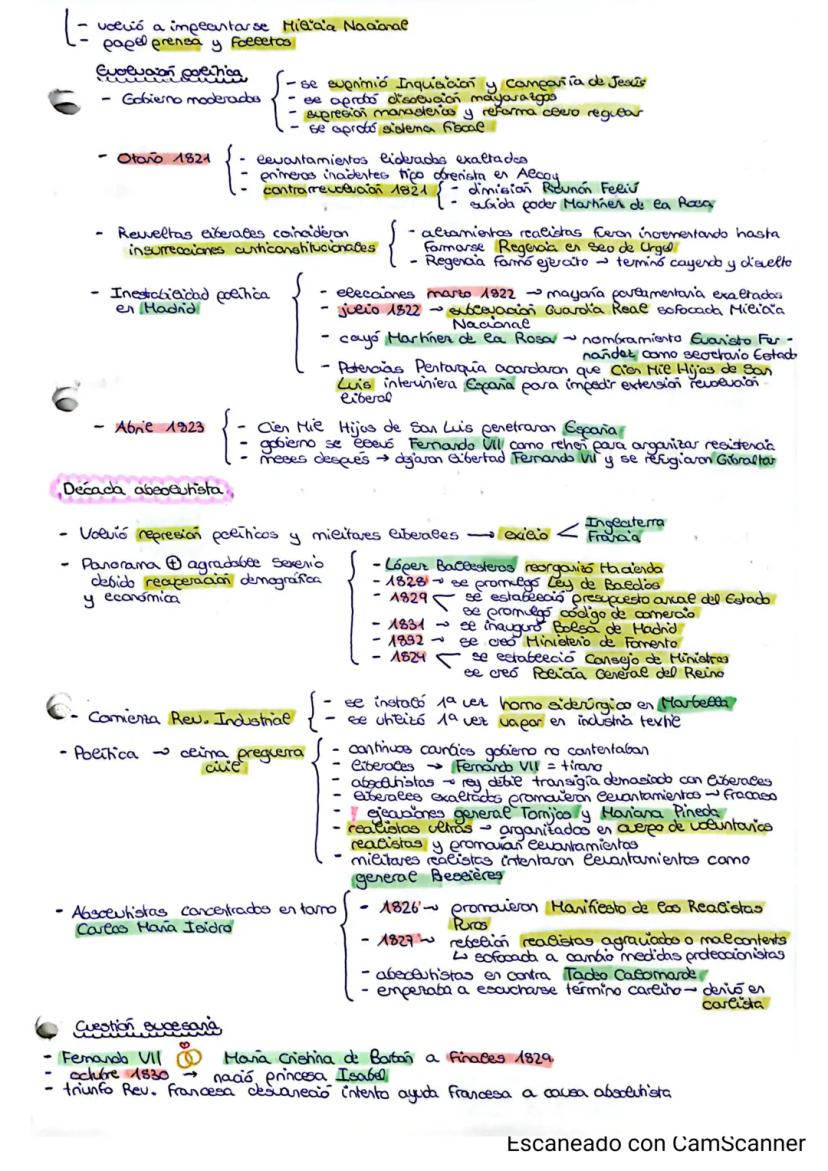 - volvió a implantarse Milicia Nacional
- papel prensa y folletos
Evolución política
- Gobierno moderados
- se suprimió Inquisición y Compañía de Jesús
- se aprobó disolución mayorazgos
- supresión monasterios y reforma clero regular
- se aprobó sistema fiscal
- Otoño 1821
- levantamientos liderados exaltados
- primeros incidentes tipo obrerista en Alcoy
- contrarrevolución 1821
- dimisión Ramón Feliú
- subida poder Martínez de la Rosa
- Revueltas liberales coincidieron
insurrecciones anticonstitucionales
- alzamientos realistas fueron incrementando hasta
formarse Regencia en Seo de Urgel
- Regencia formó ejército → terminó cayendo y disuelto
- Inestabilidad política
en Madrid
- elecciones marzo 1822 → mayoría parlamentaria exaltados
- julio 1822 → sublevación Guardia Real sofocada Milicia
Nacional
- cayó Martínez de la Rosa → nombramiento Evaristo Fer-
nández como secretario Estado
- Potencias Pentarquía acordaron que Cien Mil Hijos de San
Luis interviniera España para impedir extensión revolución
liberal
- Abril 1823
- Cien Mil Hijos de San Luis penetraron España
- gobierno se llevó Fernando VII como rehén para organizar resistencia
- meses después → dejaron libertad Fernando VII y se refugiaron Gibraltar
Década absolutista
- Volvió represión políticos y militares liberales → exilio < Inglaterra
Francia
- Panorama ⊕ agradable Sexenio
debido recuperación demográfica
y económica
- López Ballesteros reorganizó Hacienda
- 1828 → se promulgó Ley de Baldíos
- 1829 < se estableció presupuesto anual del Estado
se promulgó código de comercio
- 1831 → se inauguró Bolsa de Madrid
- 1832 → se creó Ministerio de Fomento
- 1824 < se estableció Consejo de Ministros
se creó Policía General del Reino
- Comienza Rev. Industrial
- se instaló 1ª vez horno siderúrgico en Marbella
- se utilizó 1ª vez vapor en industria textil
- Política → clima preguerra
civil
- continuos cambios gobierno no contentaban
- liberales → Fernando VII = tirano
- absolutistas → rey débil transigía demasiado con liberales
- liberales exaltados promovieron levantamientos → fracaso
- y ejecuciones general Torrijos y Mariana Pineda
- realistas ultras → organizados en cuerpo de voluntarios
realistas y promovían levantamientos
- militares realistas intentaron levantamientos como
general Bessières
- Absolutistas concentrados en torno
Carlos María Isidro
- 1826 → promovieron Manifiesto de los Realistas
Puros
- 1827 → rebelión realistas agraviados o malcontents
↳ sofocada a cambio medidas proteccionistas
- absolutistas en contra Tadeo Calomarde
- empezaba a escucharse término carlino → derivó en
carlista
Cuestión sucesoria
- Fernando VII María Cristina de Borbón a finales 1829
- octubre 1830 → nació princesa Isabel
- triunfo Rev. Francesa desvaneció intento ayuda francesa a causa absolutista
Escaneado con CamScanner